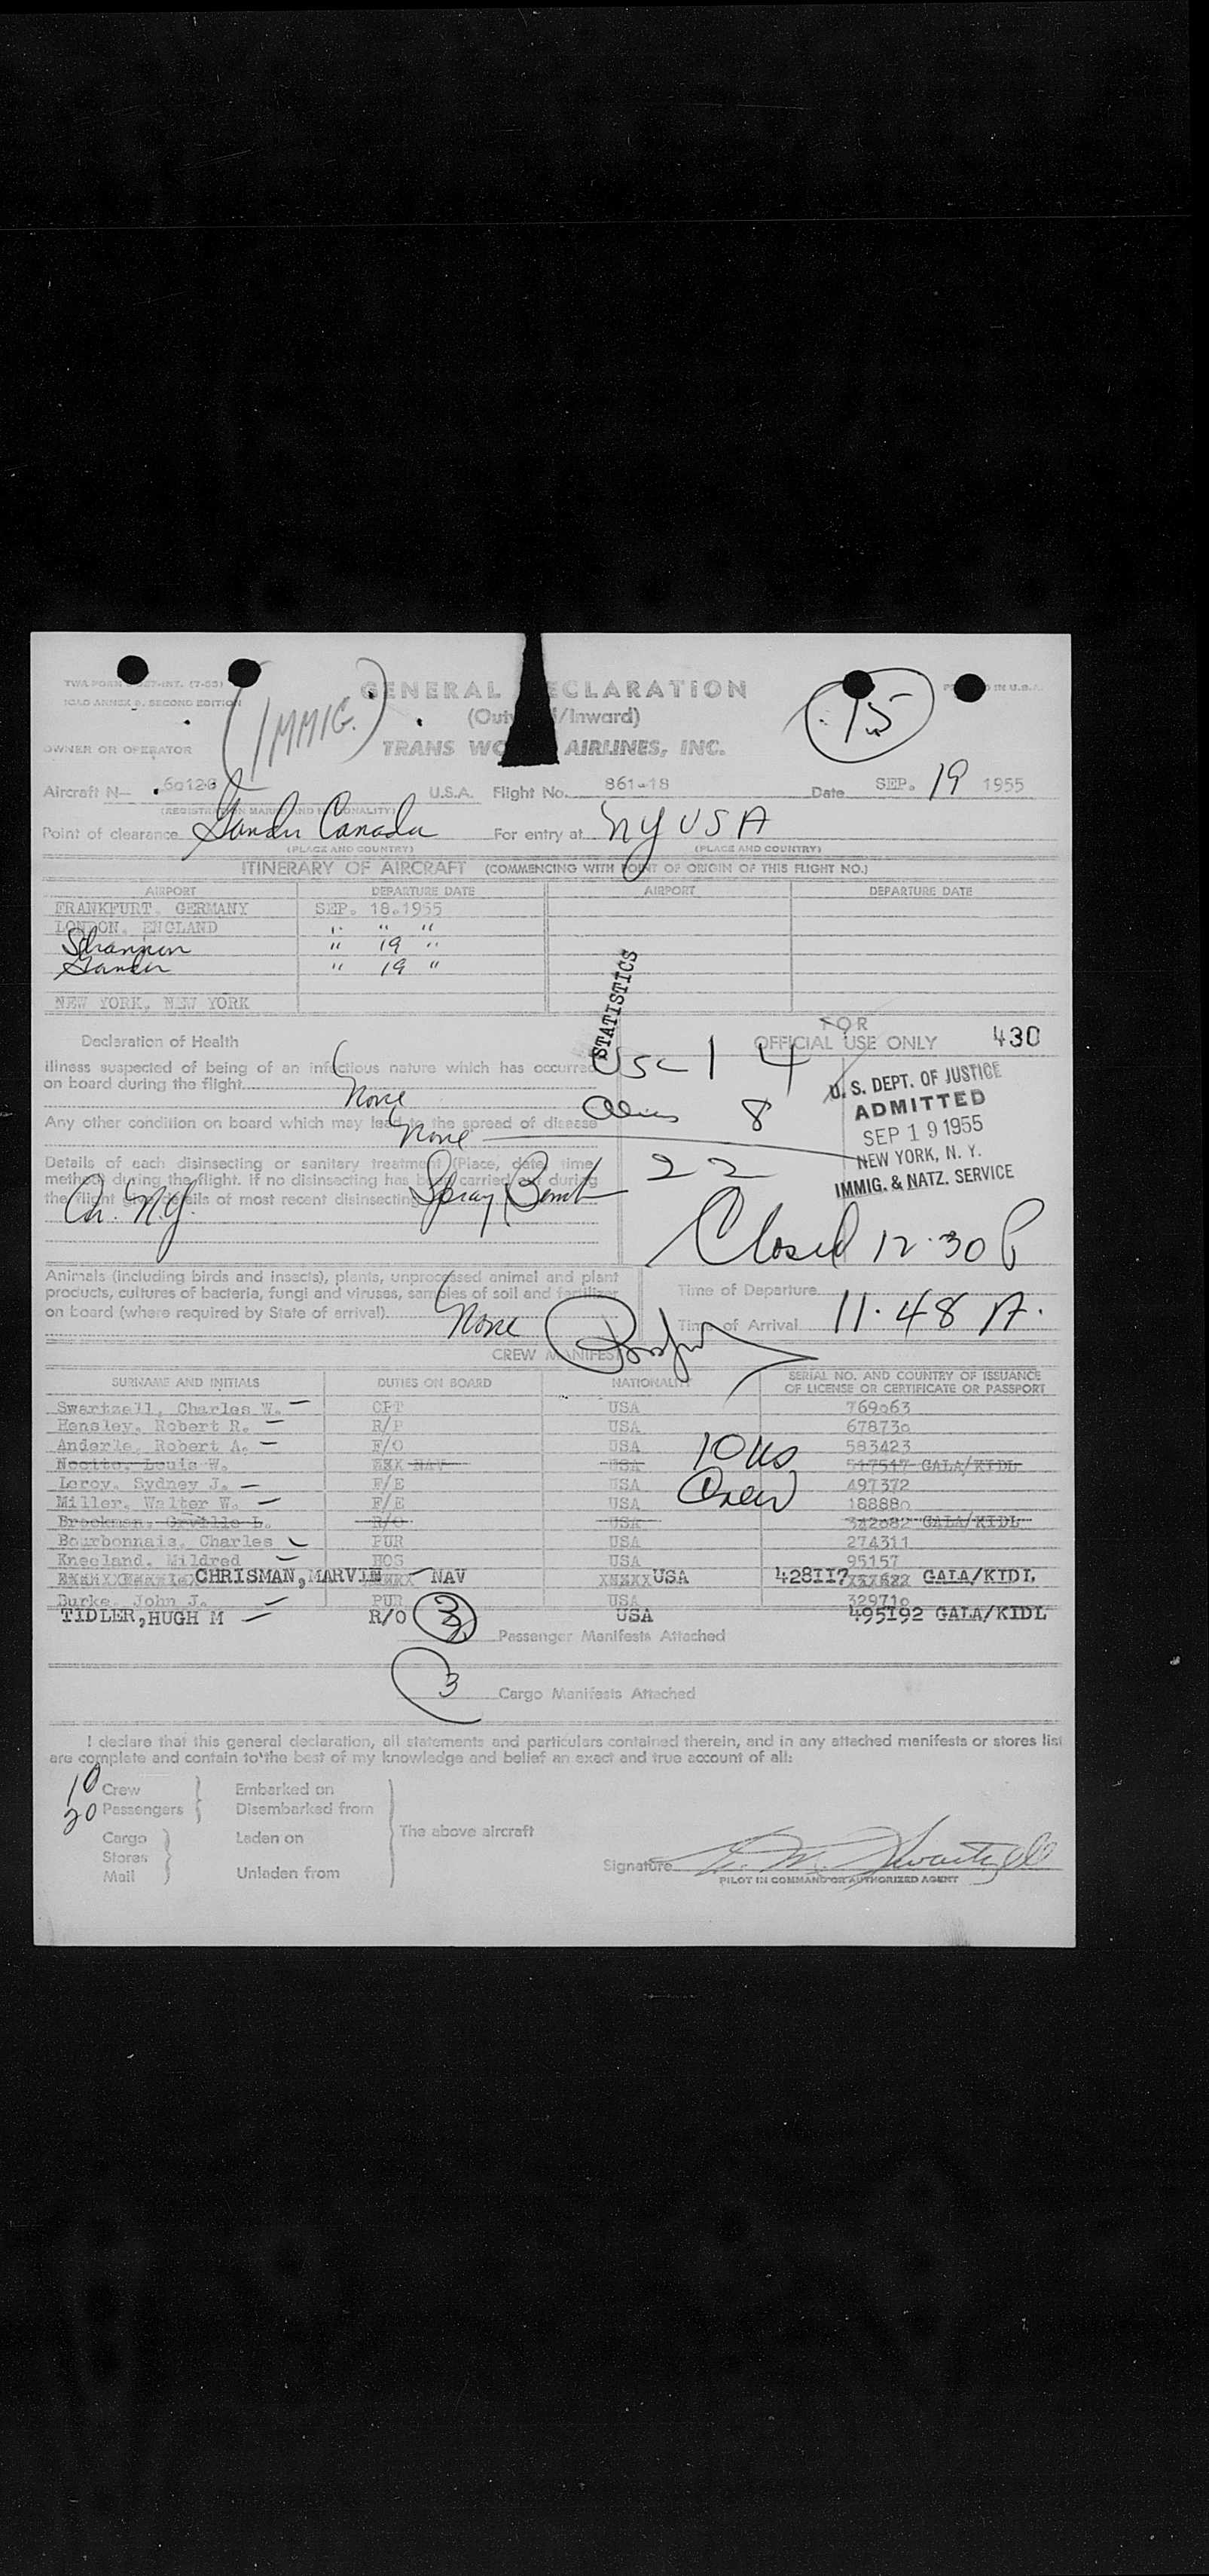 TWA FORM -INT. (7-55)
ICAO ANNEX 9. SECOND EDITION
(IMMIG.)
GENERAL ECLARATION
(Out /Inward)
15
IN U.S.A.
OWNER OR OPERATOR
TRANS WO AIRLINES, INC.
Aircraft N— 6012 U.S.A. Flight No. 861-18 Date SEP. 19 1955
(REGISTRATION MARKS AND NATIONALITY)
Point of clearance Gander Canada For entry at NY USA
(PLACE AND COUNTRY) (PLACE AND COUNTRY)
ITINERARY OF AIRCRAFT (COMMENCING WITH POINT OF ORIGIN OF THIS FLIGHT NO.)
AIRPORT DEPARTURE DATE AIRPORT DEPARTURE DATE
FRANKFURT. GERMANY SEP. 18.1955
LONDON. ENGLAND " " "
Shannon " 19 "
Gander " 19 "
NEW YORK, NEW YORK
STATISTICS
Declaration of Health
FOR
OFFICIAL USE ONLY 430
Illness suspected of being of an infectious nature which has occurred
on board during the flight. None
USC 14
Aliens 8
22
Any other condition on board which may lead to the spread of disease
None
U. S. DEPT. OF JUSTICE
ADMITTED
SEP 19 1955
NEW YORK, N. Y.
IMMIG. & NATZ. SERVICE
Details of each disinsecting or sanitary treatment (Place, date, time,
method) during the flight. If no disinsecting has been carried out during
the flight give details of most recent disinsecting Spray Bomb
Ar. NY.
Closed 12.30 P
Animals (including birds and insects), plants, unprocessed animal and plant
products, cultures of bacteria, fungi and viruses, samples of soil and fertilizer
on board (where required by State of arrival). None
Time of Departure
Time of Arrival 11.48 A.
CREW MANIFEST
SURNAME AND INITIALS DUTIES ON BOARD NATIONALITY SERIAL NO. AND COUNTRY OF ISSUANCE
OF LICENSE OR CERTIFICATE OR PASSPORT
Swartzell, Charles W. CPT USA 769063
Hensley, Robert R. R/P USA 678730
Anderle, Robert A. F/O USA 583423
Louis W. NAV USA 517517 GALA/KIDL
Leroy, Sydney J. F/E USA 497372
Miller, Walter W. F/E USA 188880
Brockman, Orville L. R/O USA 342082 GALA/KIDL
Bourbonnais, Charles PUR USA 274311
Kneeland, Mildred HOS USA 95157
CHRISMAN,MARVIN NAV USA 428117 GALA/KIDL
Burke, John J. PUR USA 329710
TIDLER,HUGH M R/O USA 495192 GALA/KIDL
10 US
Crew
Passenger Manifests Attached
3 Cargo Manifests Attached
I declare that this general declaration, all statements and particulars contained therein, and in any attached manifests or stores list
are complete and contain to the best of my knowledge and belief an exact and true account of all:
10 Crew Embarked on
20 Passengers Disembarked from
Cargo Laden on The above aircraft
Stores
Mail Unladen from
Signature C. W. Swartzell
PILOT IN COMMAND OR AUTHORIZED AGENT